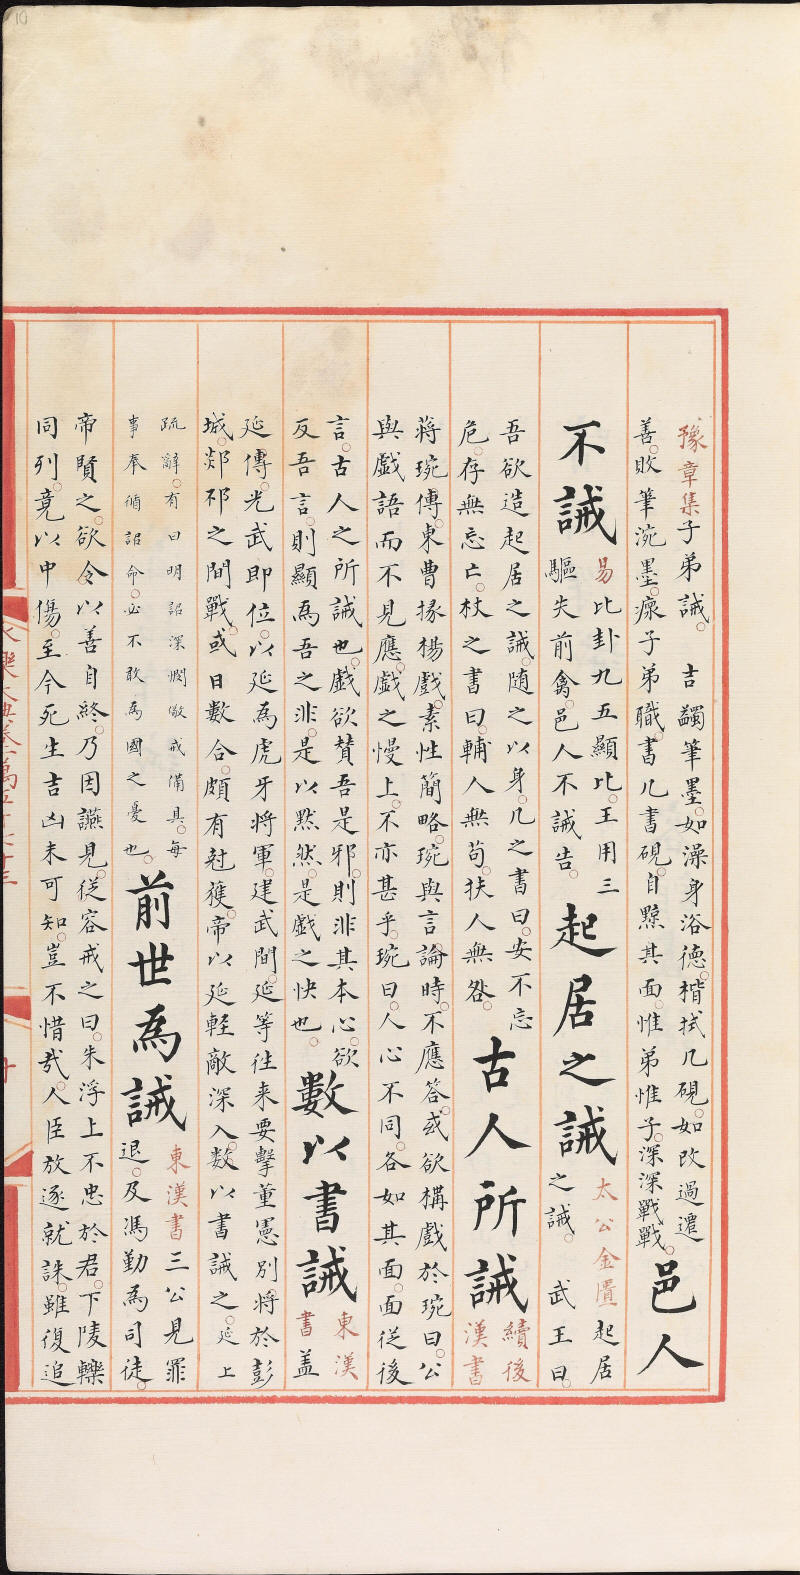 豫章集子弟誡。 吉蠲筆墨。如澡身浴德。楷拭几硯。如改過遷
善。敗筆涴墨。瘝子弟職。書几書硯。自黥其面。惟弟惟子。深深戰戰。
邑人
不誡
易比卦九五顯比。王用三
驅失前禽。邑人不誡告。
起居之誡
太公金匱起居
之誡。 武王曰。
吾欲造起居之誡。随之以身。几之書曰。安不忘
危。存無忘亡。杖之書曰。輔人無苟。扶人無咎。
古人所誡
續後
漢書
蔣琬傳。東曹掾楊戲。素性簡略。琬與言論時。不應答。或欲構戲於琬曰。公
與戲語而不見應。戲之慢上。不亦甚乎。琬曰。人心不同。各如其面。面從後
言。古人之所誡也。戲欲賛吾是邪。則非其本心。欲
反吾言。則顯為吾之非。是以黙然。是戲之快也。
數以書誡
東漢
書盖
延傳。光武即位。以延為虎牙將軍。建武間。延等往来要擊董憲別將於彭
城。郯邳之間。戰或日數合。頗有尅獲。帝以延輕敵深入。數以書誡之。延上
疏辭。有曰明詔深閔儆戒備具。每
事奉循詔命。必不敢為國之憂也。
前世為誡
東漢書三公見罪
退。及馮勤為司徒。
帝賢之。欲令以善自終。乃因讌見。從容戒之曰。朱浮上不忠於君。下陵轢
同列。竟以中傷。至今死生吉凶未可知。豈不惜哉。人臣放逐就誅。雖復追
樂大典卷一萬五千七十三
10